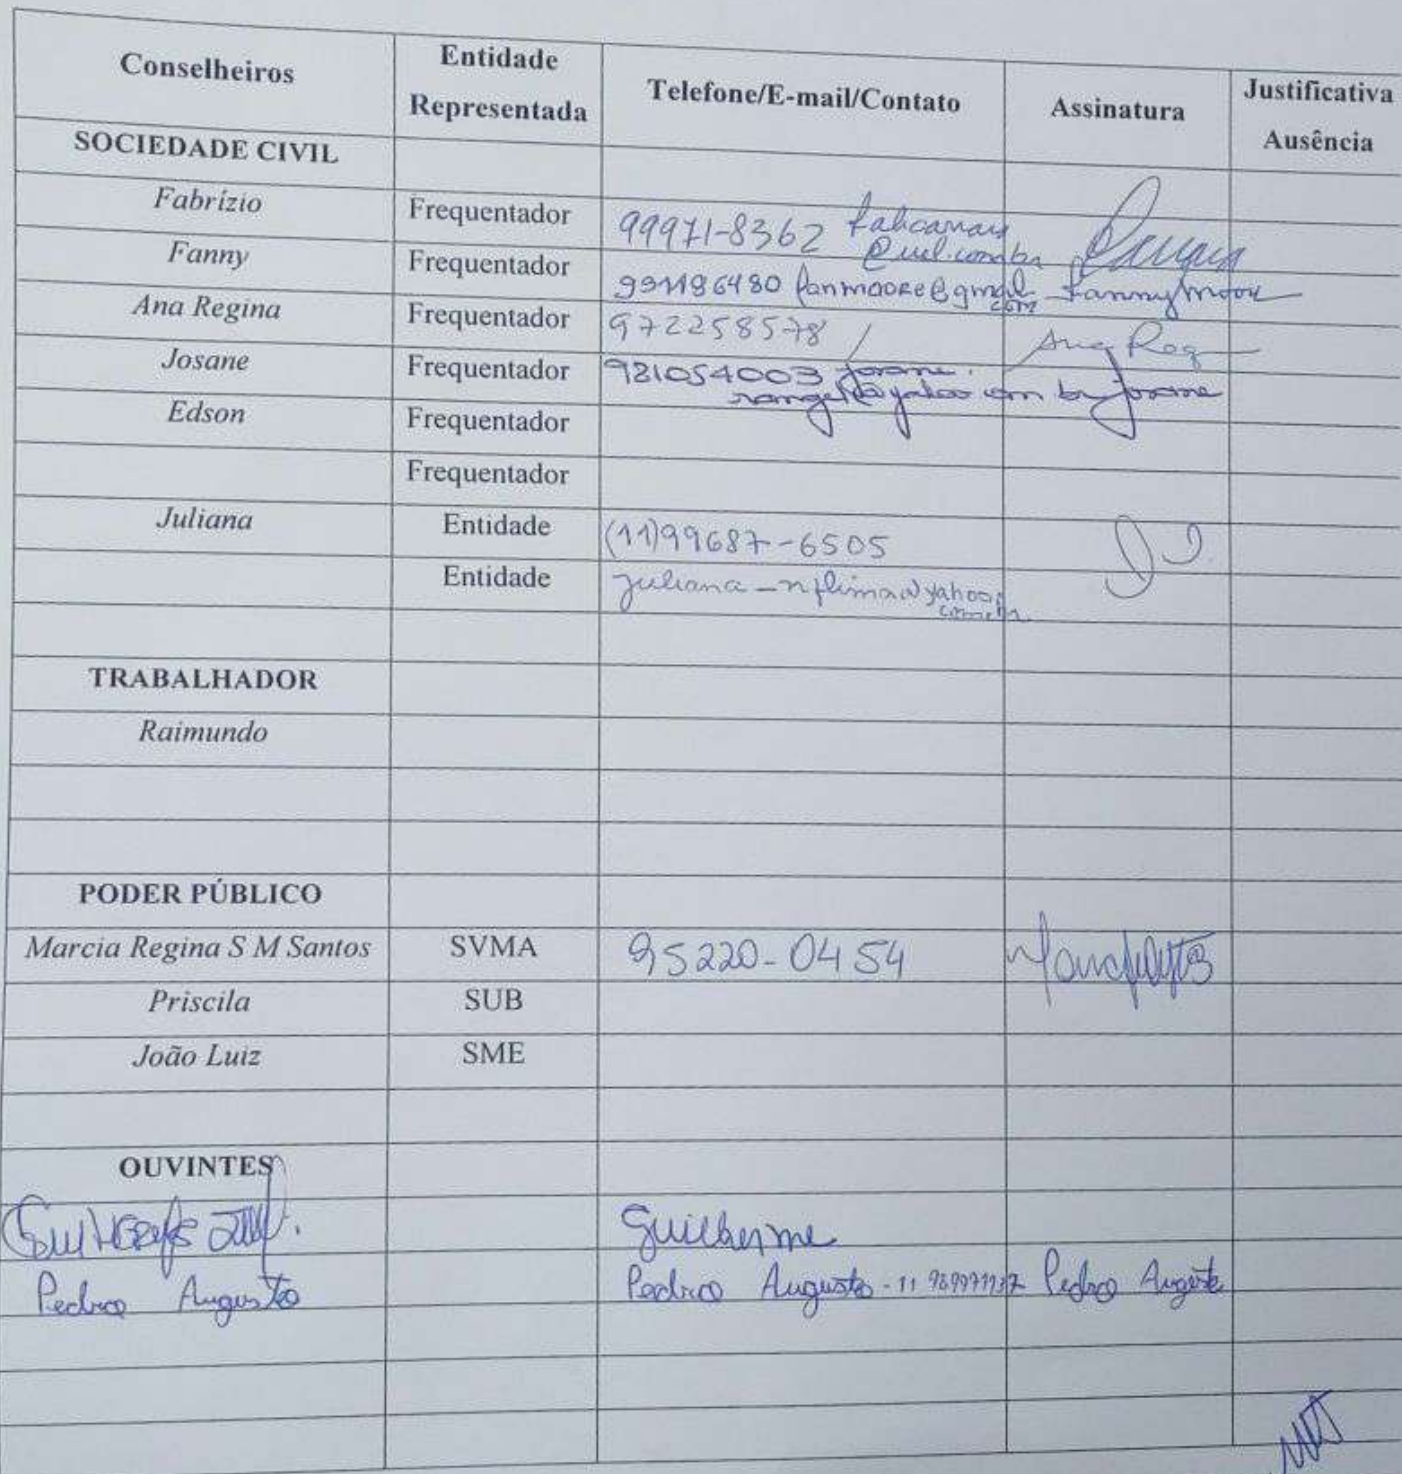 Conselheiros Entidade Representada Telefone/E-mail/Contato Assinatura Justificativa Ausência
SOCIEDADE CIVIL
Fabrízio Frequentador 99971-8362
Fanny Frequentador 991196480 fanmoore@gmail.com Fanny Moore
Ana Regina Frequentador 972258578 / Ana Reg
Josane Frequentador 981054003 josane.
rangel@yahoo.com.br Josane
Edson Frequentador
Frequentador
Juliana Entidade (11)99687-6505
Entidade juliana_nflima@yahoo.com.br
TRABALHADOR
Raimundo
PODER PÚBLICO
Marcia Regina S M Santos SVMA 95220-0454
Priscila SUB
João Luiz SME
OUVINTES
Guilherme
Pedro Augusto Pedro Augusto - 11 Pedro Augusto